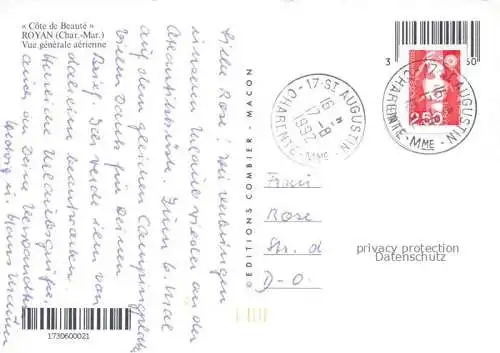 « Côte de Beauté »
ROYAN (Char.-Mar.)
Vue générale aérienne
Liebe Rose! Wir verbringen
unseren Urlaub wieder an der
Atlantikküste. Zum 6. Mal
auf dem gleichen Campingplatz.
Vielen Dank für Deinen
Brief. Ich werde ihn von
daheim beantworten.
Herzliche Urlaubsgrüße,
auch an Deine Verwandten
Hedwig u. Hans
© EDITIONS COMBIER - MACON
17-ST AUGUSTIN
16 H
17-8
1992
CHARENTE-MME
3
50
17-ST AUGUSTIN
16 H
CHARENTE-MME
2,50
Frau
Rose
Str. d
D-O
privacy protection
Datenschutz
1730600021